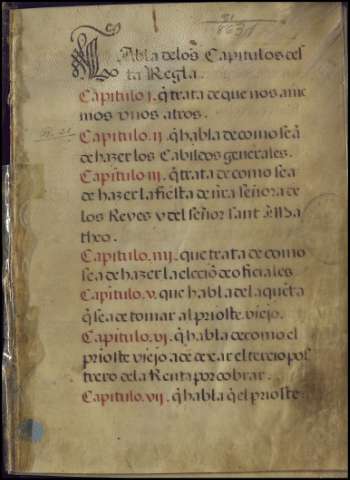 Tabla delos Capitulos des
ta Regla.
Capitulo. I. q̃ trata de que nos ame
mos vnos a tros.
Capitulo. II. q̃ habla de como se ã
de hazer los Cabildos generales.
Capitulo. III. q̃ trata de como se a
de hazer la fiesta de nr̃a señora de
los Reyes y del señor sant Ma
theo.
Capitulo. IIII. que trata de como
se a de hazer la elecciõ de oficiales.
Capitulo. V. que habla de la quẽta
q̃ se a de tomar al prioste viejo.
Capitulo. VI. q̃ habla de como el
prioste viejo a de dexar el tercio pos
trero de la Renta por cobrar.
Capitulo. VII. q̃ habla q̃ el prioste